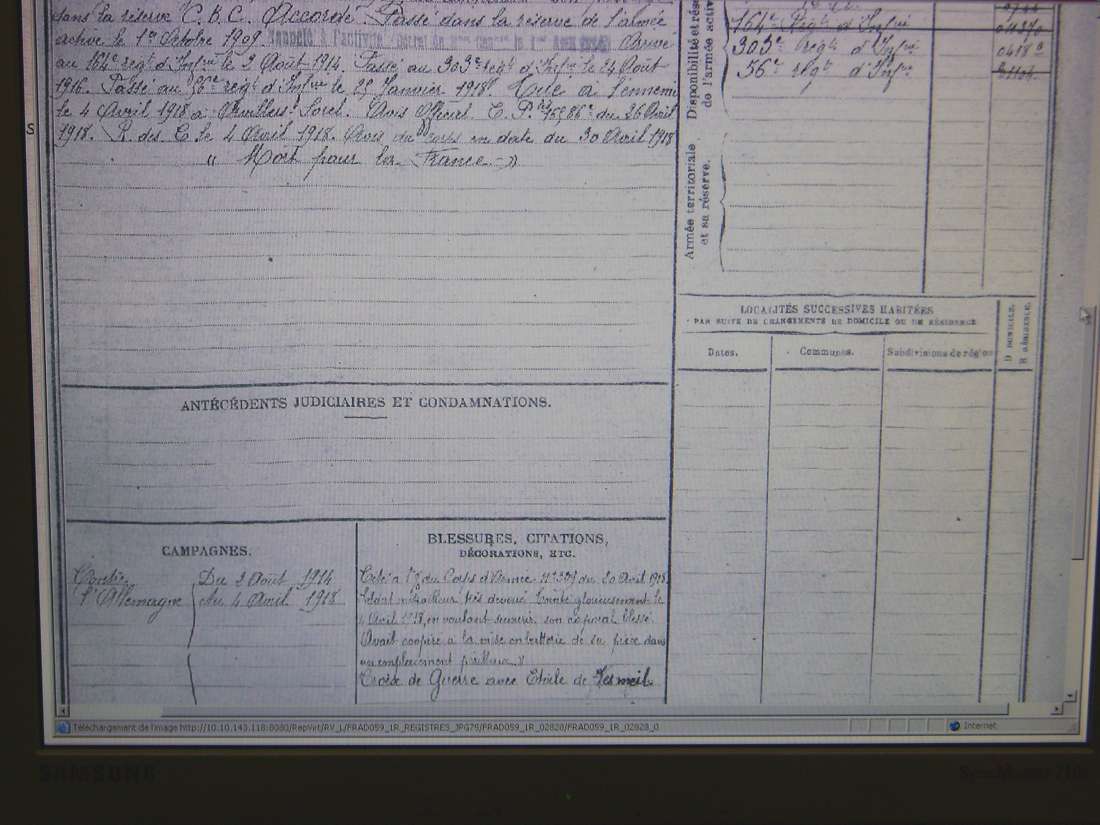 dans la réserve C.B.C. Accordé. Passé dans la réserve de l'armée
active le 1er Octobre 1909. Rappelé à l'activité Arrivé
au 164e régt d'Infrie le 2 Août 1914. Passé au 303e régt d'Infrie le 24 Août
1916. Passé au 56e régt d'Infrie le 25 Janvier 1918. Tué à l'ennemi
le 4 Avril 1918 à Sorel. Avis Officiel C. P. du 26 Avril
1918. R. des C. le 4 Avril 1918. Avis du corps en date du 30 Avril 1918
" Mort pour la France "
ANTÉCÉDENTS JUDICIAIRES ET CONDAMNATIONS.
CAMPAGNES.
Contre
l'Allemagne
Du 2 Août 1914
Au 4 Avril 1918
BLESSURES, CITATIONS,
DÉCORATIONS, ETC.
Cité à l'O. du Corps d'Armée du 20 Avril 1918
très dévoué. Tombé glorieusement le
4 Avril 1918, en voulant secourir son caporal blessé.
Avait coopéré à la mise en batterie de sa pièce dans
un emplacement périlleux »
Croix de Guerre avec Etoile de Vermeil
Disponibilité et rése
de l'armée activ
164e Régt d'Infrie
303e régt d'Infrie
56e régt d'Infrie
Armée territoriale
et sa réserve.
LOCALITÉS SUCCESSIVES HABITÉES
PAR SUITE DE CHANGEMENTS DE DOMICILE OU DE RÉSIDENCE
Dates.
Communes.
Subdivisions de région
D DOMICILE.
R RÉSIDENCE.
S
Téléchargement de l'image http://10.10.143.118:8080/RepVet/RV_L/FRAD059_1R_REGISTRES_JPG79/FRAD059_1R_02828/FRAD059_1R_02828_0
Internet
SAMSUNG
SyncMaster